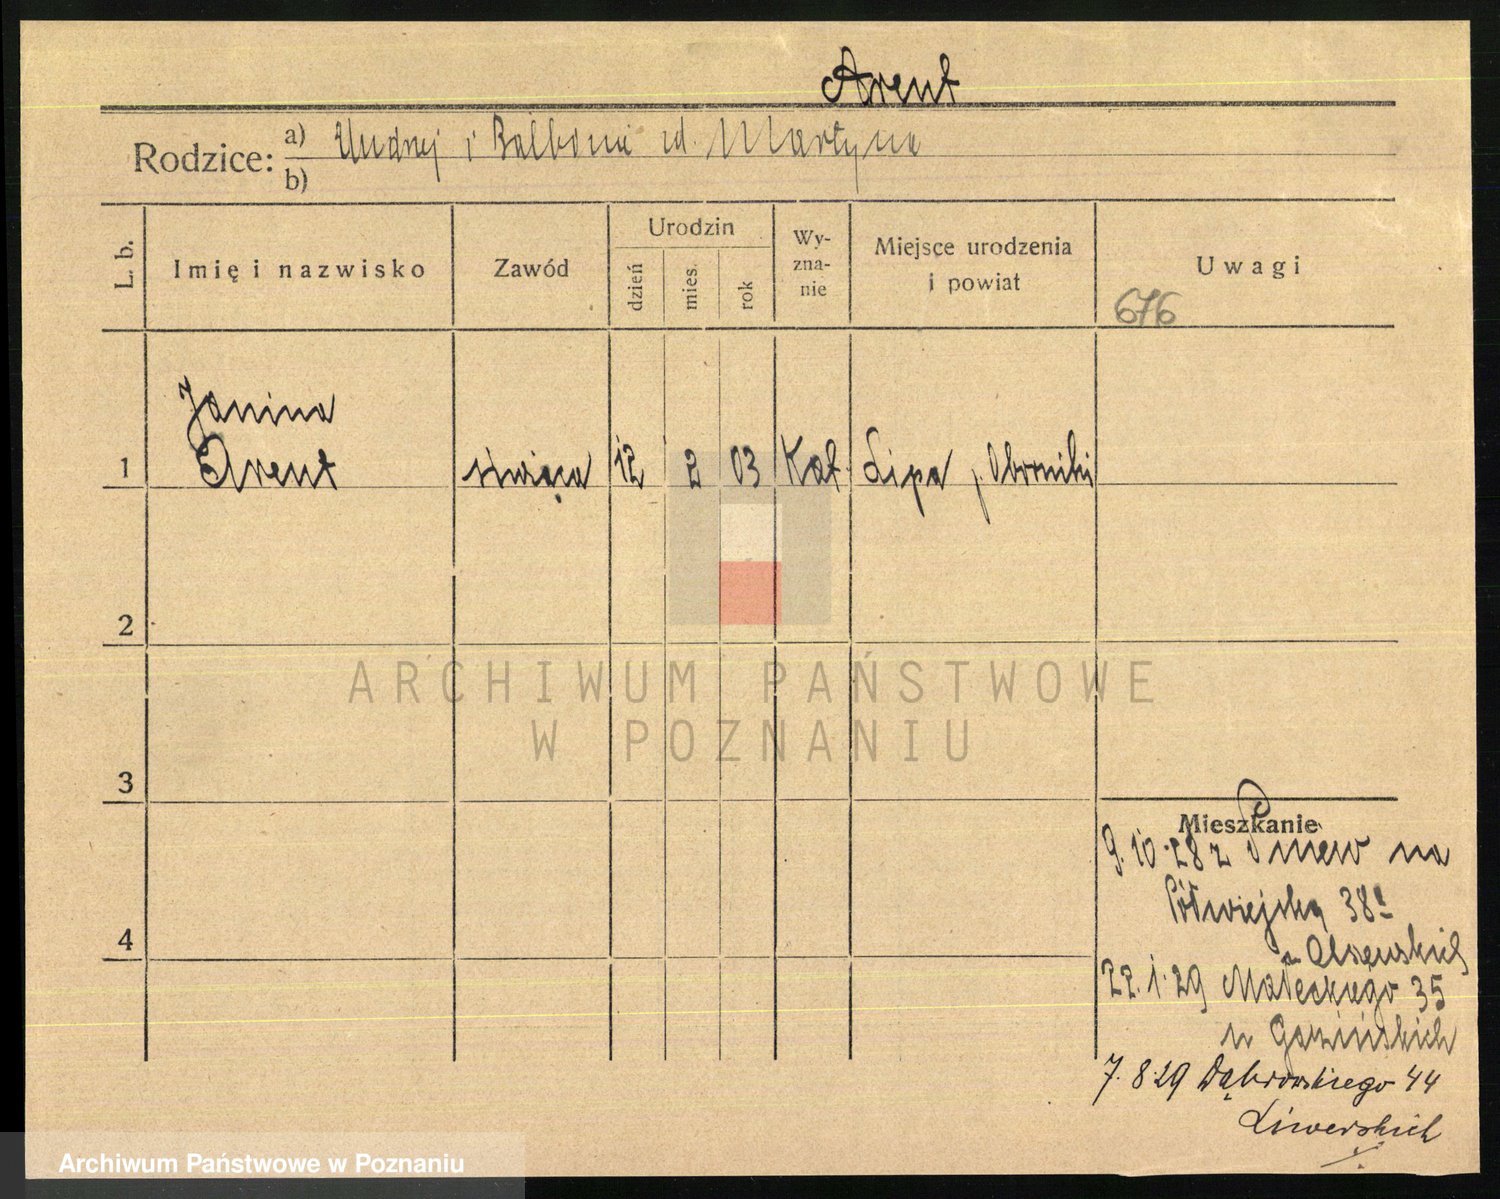 Arent
Rodzice: a) Andrzej i Balbina zd. Martyna
b)
L. b. Imię i nazwisko Zawód Urodzin dzień mies. rok Wy-zna-nie Miejsce urodzenia i powiat Uwagi
676
Janina
1 Arent służąca 12 2 03 Kat. Lipa p. Oborniki
2
3
4
Mieszkanie
9.10.28 z Pniew na
Półwiejską 38
u Olszewskich
22.1.29 Małeckiego 35
u
7.8.29 Dąbrowskiego 44
Liwerskich
ARCHIWUM PAŃSTWOWE
W POZNANIU
Archiwum Państwowe w Poznaniu